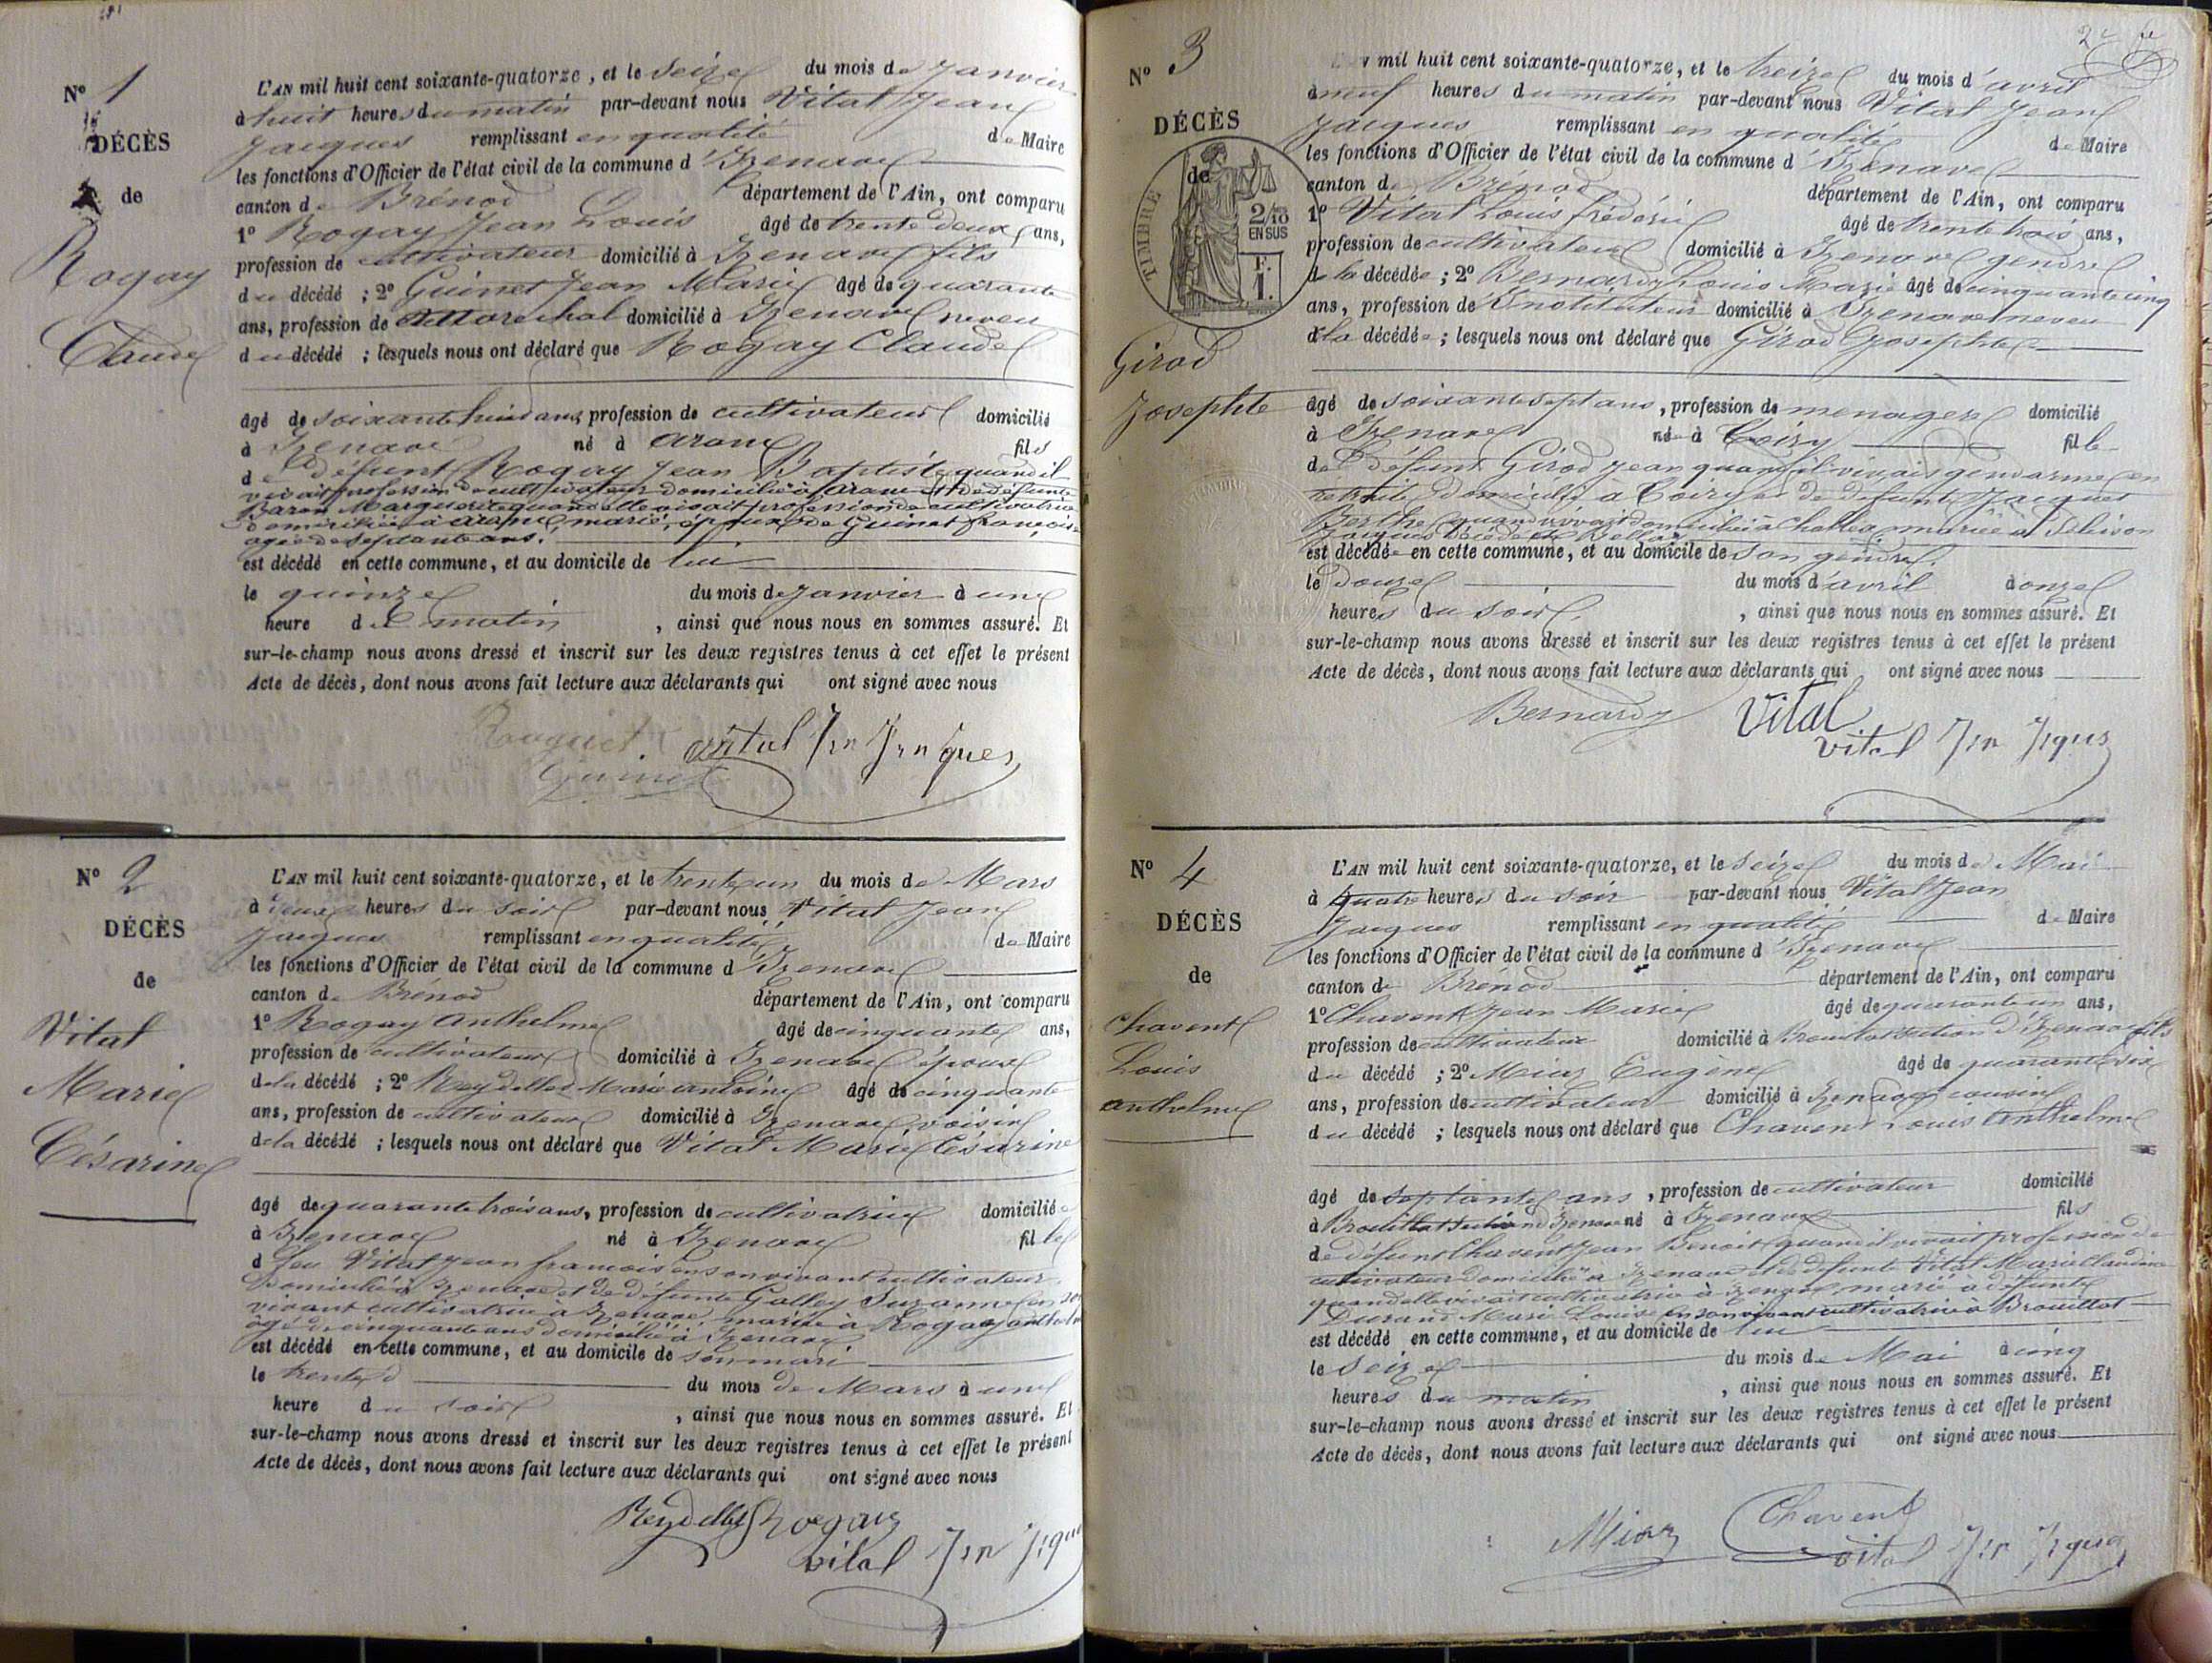 N° 1
DÉCÈS
de
Rogay
Claude
L'AN mil huit cent soixante-quatorze, et le Seize du mois de Janvier
à huit heures du matin par-devant nous Vital Jean
Jacques remplissant en qualité de Maire
les fonctions d'Officier de l'état civil de la commune d'Izenave
canton de Brénod département de l'Ain, ont comparu
1° Rogay Jean Louis âgé de trente deux ans,
profession de cultivateur domicilié à Izenave fils
du décédé ; 2° Guinet Jean Marie âgé de quarante
ans, profession de Marechal domicilié à Izenave neveu
du décédé ; lesquels nous ont déclaré que Rogay Claude
âgé de soixante huit ans, profession de cultivateur domicilié
à Izenave né à arane fils
de défunt Rogay Jean Baptiste quand il
vivait profession de cultivateur domicilié à arane et de défunte
Baron Marguerite quand elle vivait profession de cultivatrice
domiciliée à arane, marié, époux de Guinet françoise
agée de septante ans.
est décédé en cette commune, et au domicile de lui
le quinze du mois de Janvier à une
heure du matin, ainsi que nous nous en sommes assuré. Et
sur-le-champ nous avons dressé et inscrit sur les deux registres tenus à cet effet le présent
Acte de décès, dont nous avons fait lecture aux déclarants qui ont signé avec nous
Guinet
vital Jn Jques
N° 2
DÉCÈS
de
Vital
Marie
Césarine
L'AN mil huit cent soixante-quatorze, et le trente un du mois de Mars
à deux heures du soir par-devant nous Vital Jean
Jacques remplissant en qualité de Maire
les fonctions d'Officier de l'état civil de la commune d'Izenave
canton de Brénod département de l'Ain, ont comparu
1° Rogay Anthelme âgé de cinquante ans,
profession de cultivateur domicilié à Izenave époux
de la décédé ; 2° Reydellet Marie antoine âgé de cinquante
ans, profession de cultivateur domicilié à Izenave voisin
de la décédé ; lesquels nous ont déclaré que Vital Marie Césarine
âgé de quarante trois ans, profession de cultivatrice domiciliée
à Izenave né à Izenave fille
d feu Vital Jean francois en son vivant cultivateur
Domicilié à Izenave et de défunte Galley Suzanne en son
vivant cultivatrice à Izenave, mariée à Rogay anthelme
âgé de cinquante ans domicilié à Izenave
est décédé en cette commune, et au domicile de son mari
le trente du mois de Mars à une
heure du soir, ainsi que nous nous en sommes assuré. Et
sur-le-champ nous avons dressé et inscrit sur les deux registres tenus à cet effet le présent
Acte de décès, dont nous avons fait lecture aux déclarants qui ont signé avec nous
Reydellet Rogay
vital Jn Jque
N° 3
DÉCÈS
de
TIMBRE
2/10
EN SUS
F.
1.
Girod
Josephte
mil huit cent soixante-quatorze, et le treize du mois d'avril
à neuf heures du matin par-devant nous Vital Jean
Jacques remplissant en qualité de Maire
les fonctions d'Officier de l'état civil de la commune d'Izenave
canton de Brénod département de l'Ain, ont comparu
1° Vital Louis frédéric âgé de trente trois ans,
profession de cultivateur domicilié à Izenave gendre
de la décédée ; 2° Bernardy Louis Marie âgé de cinquante cinq
ans, profession de Instituteur domicilié à Izenave neveu
de la décédée ; lesquels nous ont déclaré que Girod Josephte
âgé de soixante sept ans, profession de menagere domicilié
à Izenave née à Coizy fille
de défunt Girod Jean quand il vivait gendarme en
retraite domicilié à Coizy et de défunte Jacquet
Berthe quand vivait domiciliée à Challes mariée à
est décédée en cette commune, et au domicile de son gendre.
le douze du mois d'avril à onze
heures du soir, ainsi que nous nous en sommes assuré. Et
sur-le-champ nous avons dressé et inscrit sur les deux registres tenus à cet effet le présent
Acte de décès, dont nous avons fait lecture aux déclarants qui ont signé avec nous
Bernardy Vital
vital Jn Jques
N° 4
DÉCÈS
de
Chavent
Louis
anthelme
L'AN mil huit cent soixante-quatorze, et le seize du mois de Mai
à quatre heures du soir par-devant nous Vital Jean
Jacques remplissant en qualité de Maire
les fonctions d'Officier de l'état civil de la commune d'Izenave
canton de Brénod département de l'Ain, ont comparu
1° Chavent Jean Marie âgé de quarante un ans,
profession de cultivateur domicilié à Brouillat section d'Izenave fils
du décédé ; 2° Miny Eugène âgé de quarante six
ans, profession de cultivateur domicilié à Izenave cousin
du décédé ; lesquels nous ont déclaré que Chavent Louis Anthelme
âgé de septante ans, profession de cultivateur domicilié
à Brouillat section d'Izenave né à Izenave fils
de défunt Chavent Jean Benoit quand il vivait profession de
cultivateur domicilié à Izenave et de défunte Vital Marie Claudine
quand elle vivait cultivatrice à Izenave, marié à défunte
Durand Marie Louise en son vivant cultivatrice à Brouillat
est décédé en cette commune, et au domicile de lui
le seize du mois de Mai à cinq
heures du matin, ainsi que nous nous en sommes assuré. Et
sur-le-champ nous avons dressé et inscrit sur les deux registres tenus à cet effet le présent
Acte de décès, dont nous avons fait lecture aux déclarants qui ont signé avec nous
Chavent
vital Jn Jques